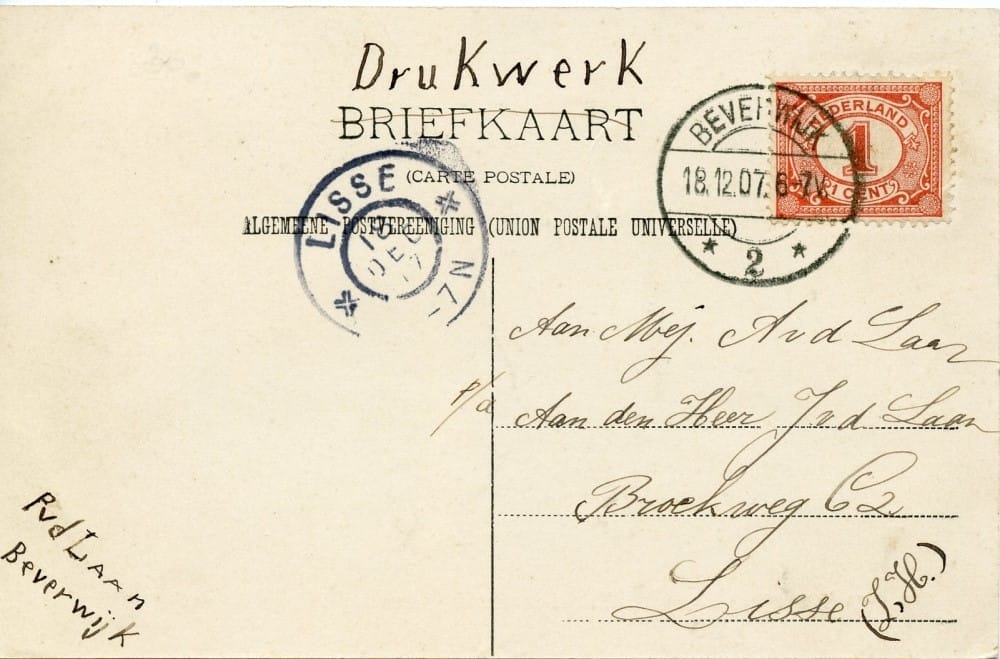 Drukwerk
BRIEFKAART
(CARTE POSTALE)
ALGEMEENE POSTVEREENIGING (UNION POSTALE UNIVERSELLE)
NEDERLAND
1
1 CENT
BEVERWIJK
18.12.07. 6-7V
2
LISSE
18 DEC 07
-7N
Aan Mej. A v d Laan
p/a Aan den Heer J v d Laan
Broekweg C2
Lisse (Z.H.)
P v d Laan
Beverwijk